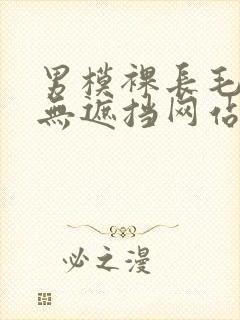 男模裸長毛
無遮挡网佔
必之漫